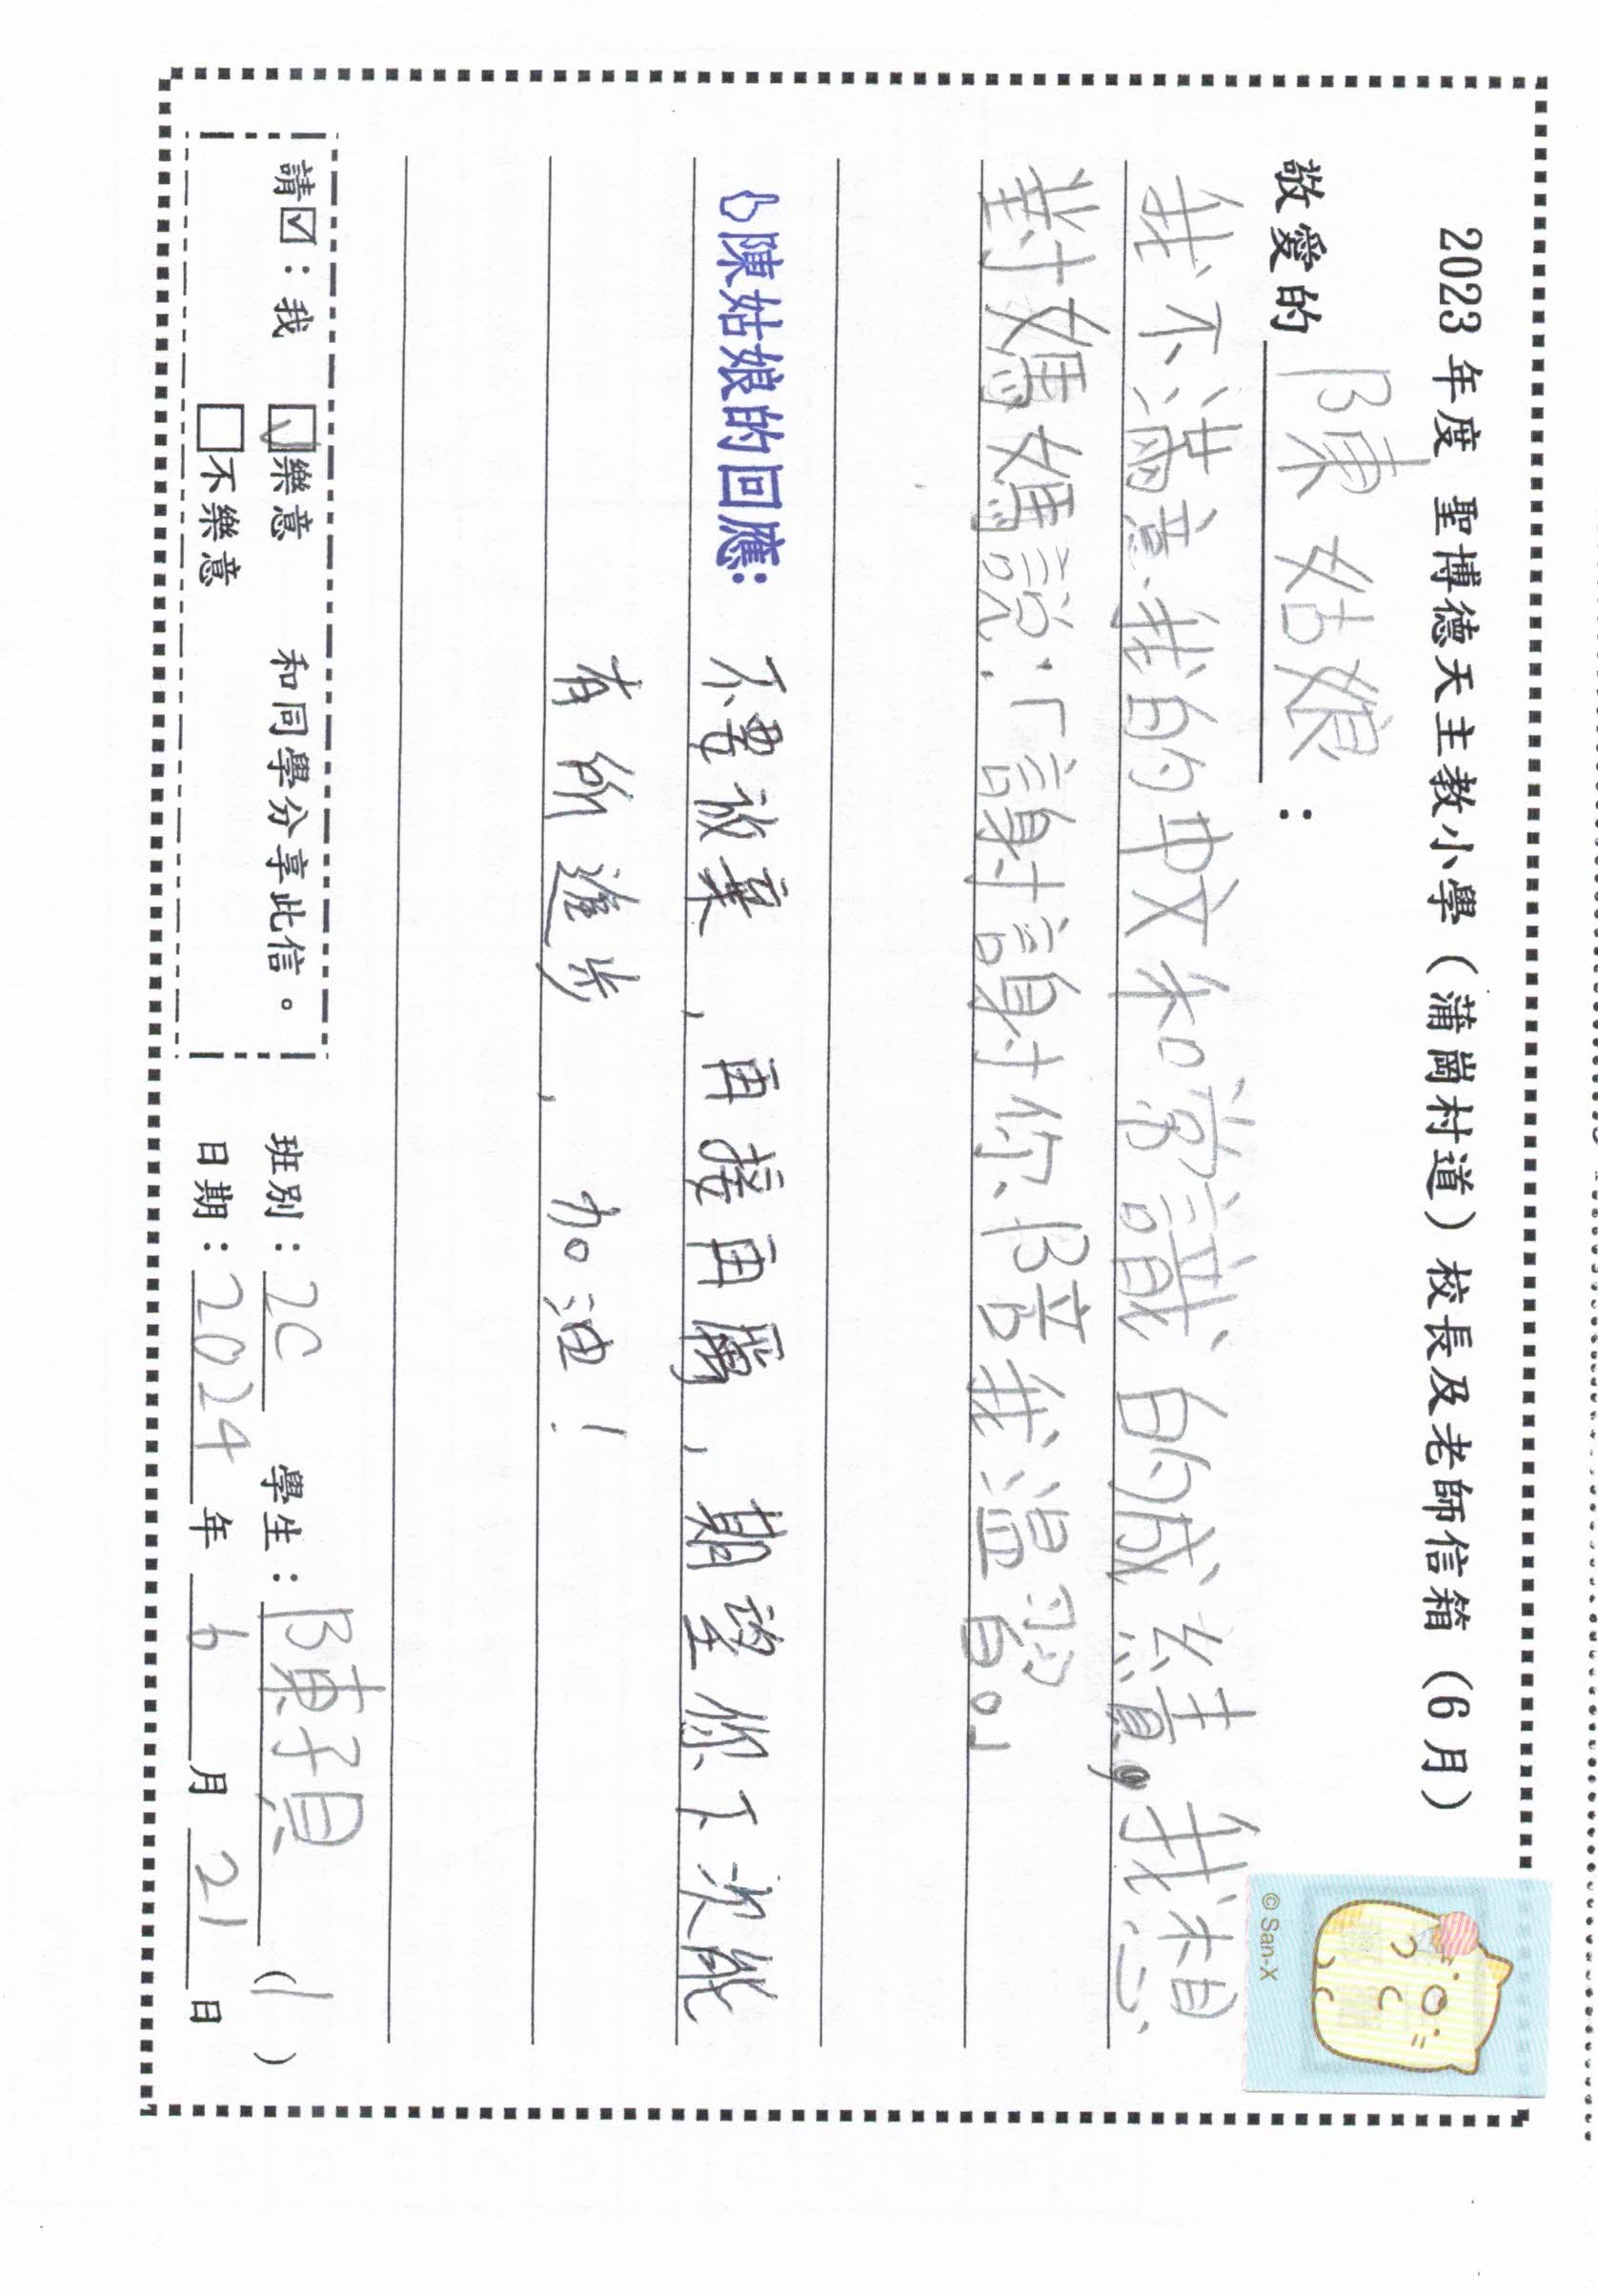 2023 年度 聖博德天主教小學（蒲崗村道）校長及老師信箱（6月）
敬愛的 陳姑娘：
我不滿意我的中文和常識的成績，我想
對媽媽說：「謝謝你陪我溫習。」
陳姑娘的回應：不要放棄，再接再厲，期望你下次能
有所進步，加油！
請☑：我 ☑樂意 和同學分享此信。
□不樂意
班別：2C 學生：陳子貝（1）
日期：2024年6月21日
© San-X